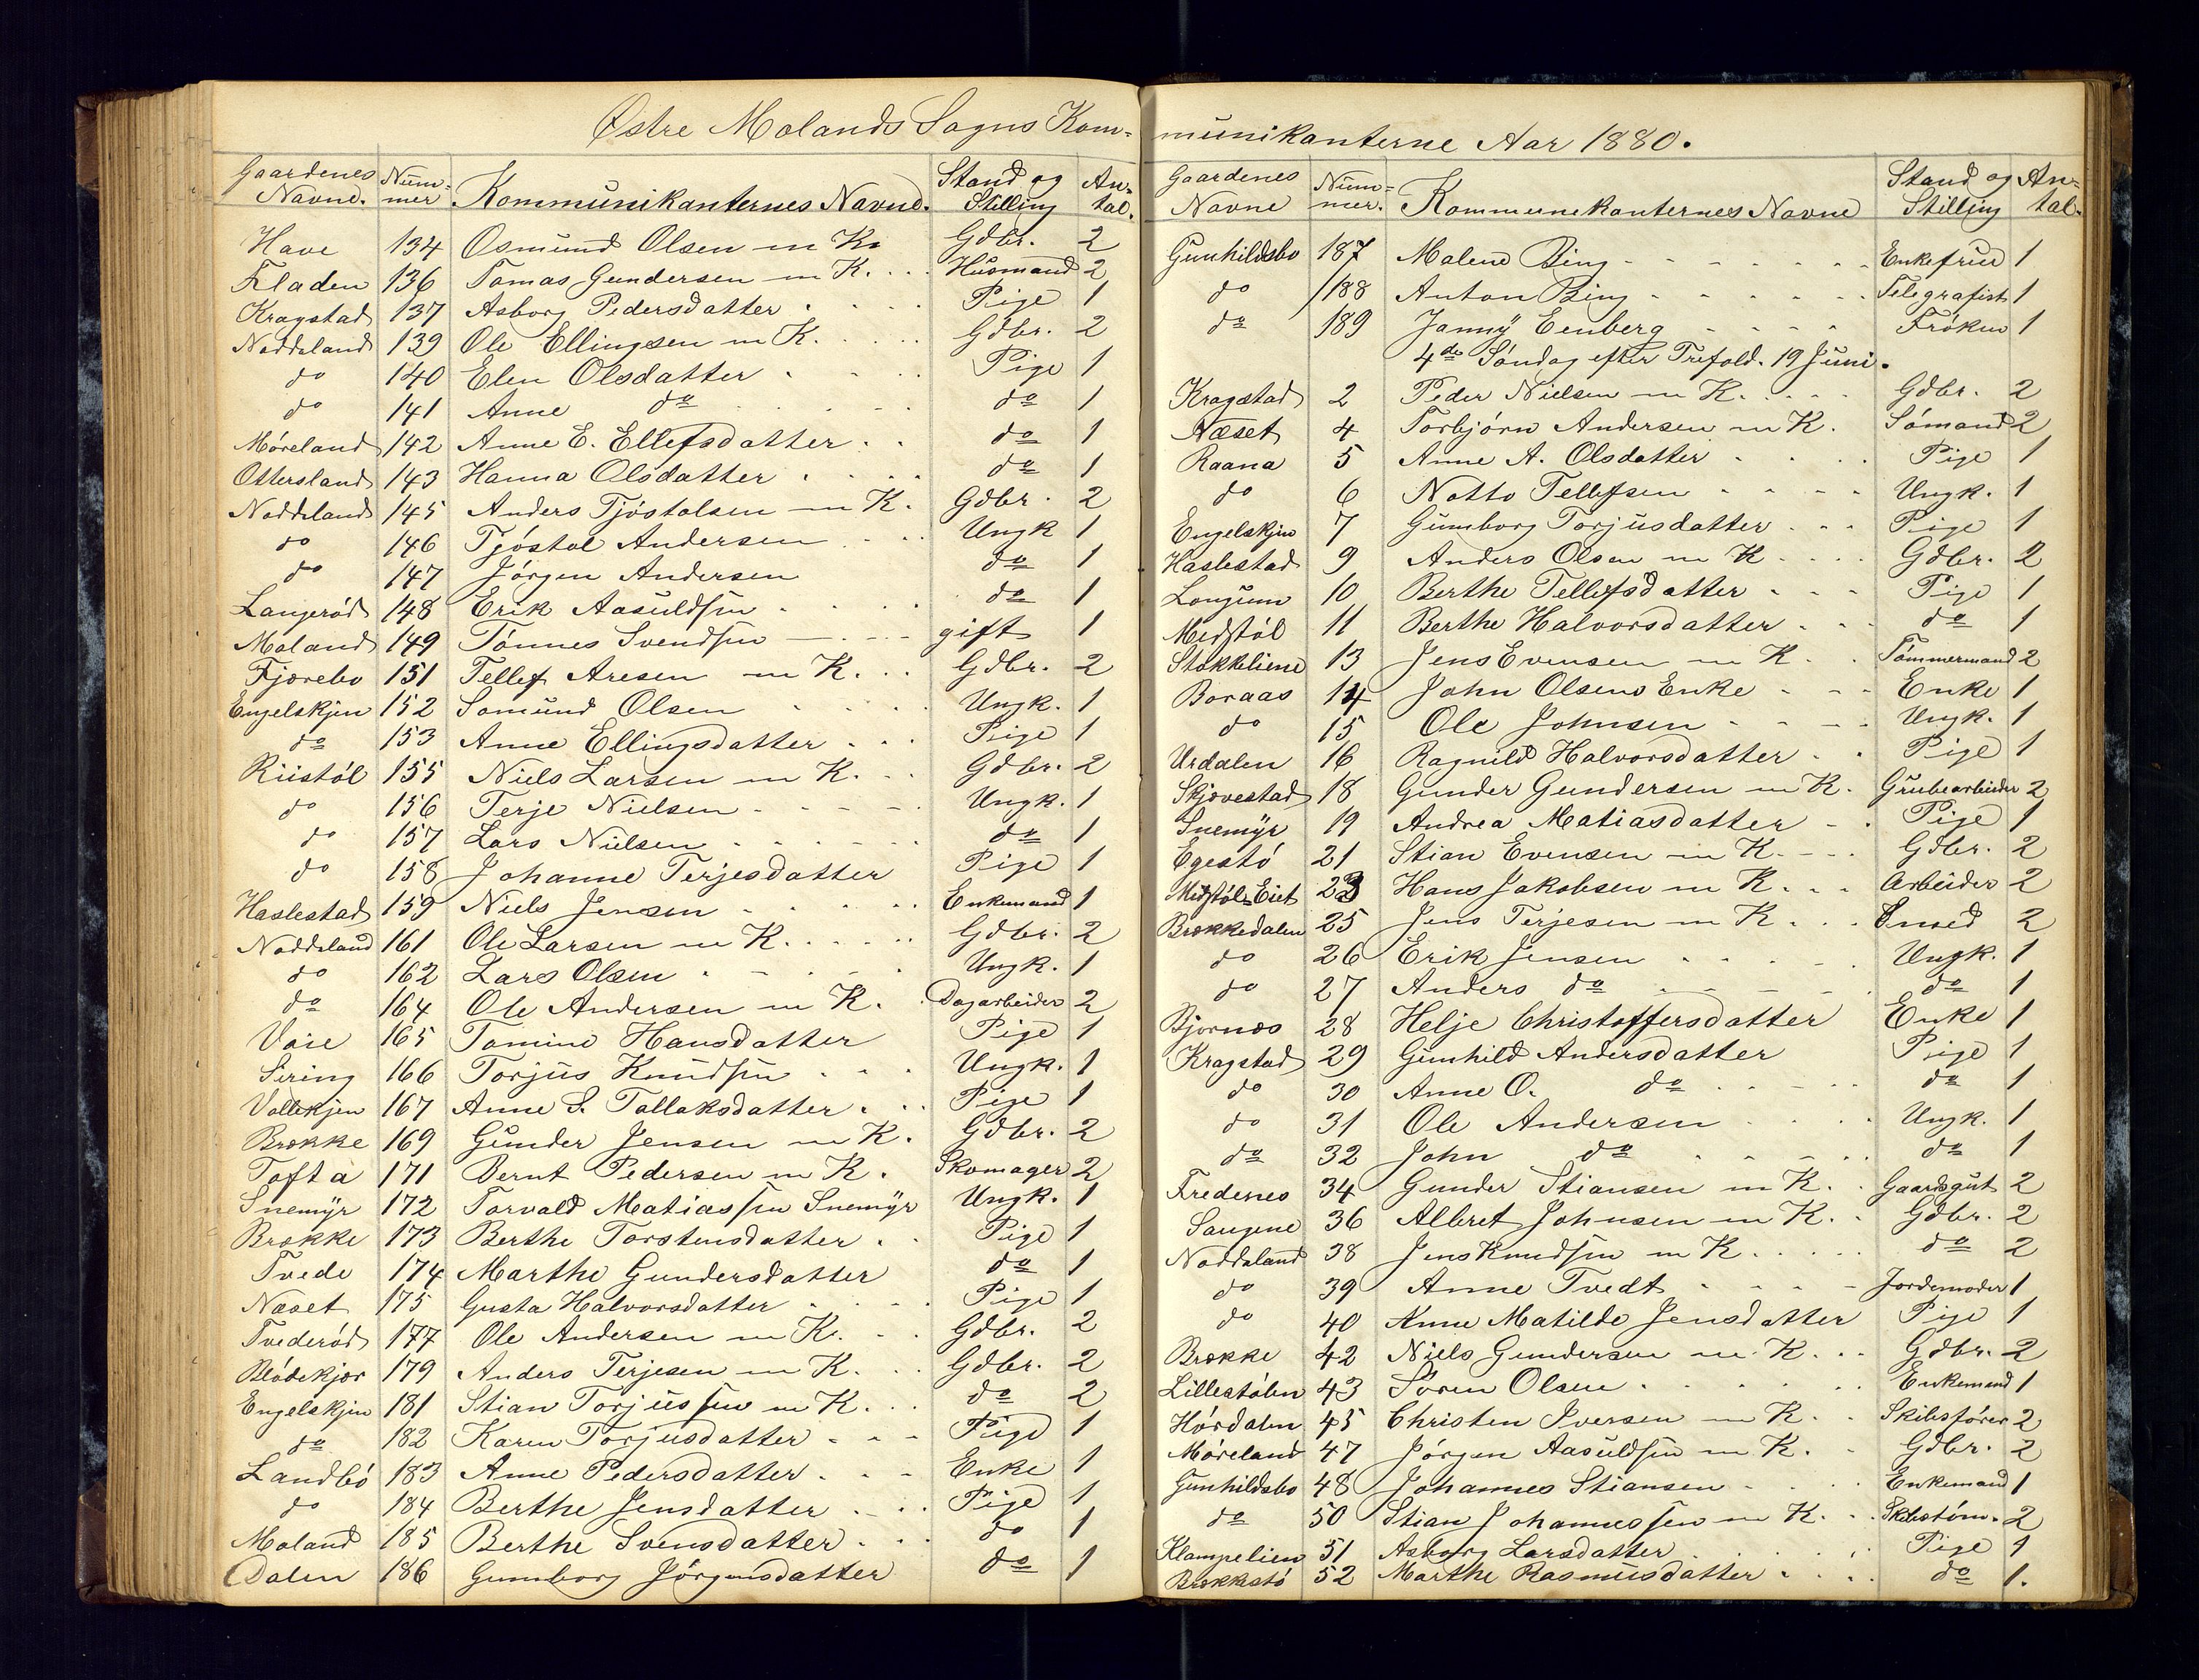 Østre Molands Sogns Kom-
Gaardenes Navne. Num-mer Kommunikanternes Navne. Stand og Stilling An-tal.
Have 134 Osmund Olsen m K. Gdbr. 2
Fladen 136 Tomas Gundersen m K. Husmand 2
Kragstad 137 Asborg Pedersdatter Pige 1
Noddeland 139 Ole Ellingsen m K. Gdbr. 2
do 140 Elen Olsdatter Pige 1
do 141 Anne do do 1
Møreland 142 Anne E. Ellefsdatter do 1
Ottersland 143 Hanna Olsdatter do 1
Noddeland 145 Anders Tjøstolsen m K. Gdbr. 2
do 146 Tjøstol Andersen Ungk 1
do 147 Jørgen Andersen do 1
Langerød 148 Erik Aasuldsen do 1
Moland 149 Tønnes Svendsen gift 1
Fjærebo 151 Tellef Aresen m K. Gdbr. 2
Engelskjen 152 Somund Olsen Ungk. 1
do 153 Anne Ellingsdatter Pige 1
Riistøl 155 Niels Larsen m K. Gdbr. 2
do 156 Terje Nielsen Ungk. 1
do 157 Lars Nielsen do 1
do 158 Johanne Terjesdatter Pige 1
Haslestad 159 Niels Jensen Enkemand 1
Noddeland 161 Ole Larsen m K. Gdbr. 2
do 162 Lars Olsen Ungk. 1
do 164 Ole Andersen m K. Dagarbeider 2
Vaie 165 Tomine Hansdatter Pige 1
Sering 166 Torjus Knudsen Ungk. 1
Vallekjen 167 Anne S. Tallaksdatter Pige 1
Brække 169 Gunder Jensen m K. Gdbr. 2
Tofta 171 Bernt Pedersen m K. Skomager 2
Snemyr 172 Torvald Matiassen Snemyr Ungk. 1
Brække 173 Berthe Torstensdatter Pige 1
Tvede 174 Marthe Gundersdatter do 1
Næset 175 Gusta Halvorsdatter Pige 1
Tvederød 177 Ole Andersen m K. Gdbr. 2
Blødekjær 179 Anders Terjesen m K. Gdbr. 2
Engelskjen 181 Stian Torjussen m K. do 2
do 182 Karen Torjusdatter Pige 1
Landbø 183 Anne Pedersdatter Enke 1
do 184 Berthe Jensdatter Pige 1
Moland 185 Berthe Svensdatter do 1
Dalen 186 Gunborg Jørgensdatter do 1
munikanterne Aar 1880.
Gaardenes Navne Num-mer. Kommunekanternes Navne Stand og Stilling An-tal.
Gunhildsbo 187 Malene Bing Enkefrue 1
do 188 Anton Bing Telegrafist 1
do 189 Janny Eenberg Frøken 1
4de Søndag efter Trefold. 19 Juni.
Kragstad 2 Peder Nielsen m K. Gdbr. 2
Næset 4 Torbjørn Andersen m K. Sømand 2
Raana 5 Anne A. Olsdatter Pige 1
do 6 Notto Tellefsen Ungk. 1
Engelskjen 7 Gunborg Torjusdatter Pige 1
Haslestad 9 Anders Olsen m K Gdbr. 2
Longum 10 Berthe Tellefsdatter Pige 1
Midstøl 11 Berthe Halvorsdatter do 1
Stokkeliene 13 Jens Evensen m K. Tømmermand 2
Boraas 14 John Olsens Enke Enke 1
do 15 Ole Johnsen Ungk. 1
Urdalen 16 Ragnild Halvorsdatter Pige 1
Skjævestad 18 Gunder Gundersen m K. Grubearbeider 2
Snemyr 19 Andrea Matiasdatter Pige 1
Egestø 21 Stian Evensen m K. Gdbr. 2
Midstøl-Eiet 23 Hans Jakobsen m K. Arbeider 2
Brækkedalen 25 Jens Terjesen m K. Smed 2
do 26 Erik Jensen Ungk. 1
do 27 Anders do do 1
Bjørnæs 28 Helje Christoffersdatter Enke 1
Kragstad 29 Gunhild Andersdatter Pige 1
do 30 Anne O. do do 1
do 31 Ole Andersen Ungk. 1
do 32 John do do 1
Fredenes 34 Gunder Stiansen m K. Gaardsgut 2
Saugene 36 Albret Johnsen m K. Gdbr. 2
Noddeland 38 Jens Knudsen m K. do 2
do 39 Anne Tvedt Jordemoder 1
do 40 Anne Matilde Jensdatter Pige 1
Brække 42 Niels Gundersen m K. Gdbr. 2
Lillestølen 43 Søren Olsen Enkemand 1
Hørdalen 45 Christen Iversen m K. Skibsfører 2
Møreland 47 Jørgen Aasuldsen m K. Gdbr. 2
Gunhildsbo 48 Johannes Stiansen Enkemand 1
do 50 Stian Johannessen m K. Skibstøm. 2
Klampelien 51 Asborg Larsdatter Pige 1
Brækkestø 52 Marthe Rasmusdatter do 1.